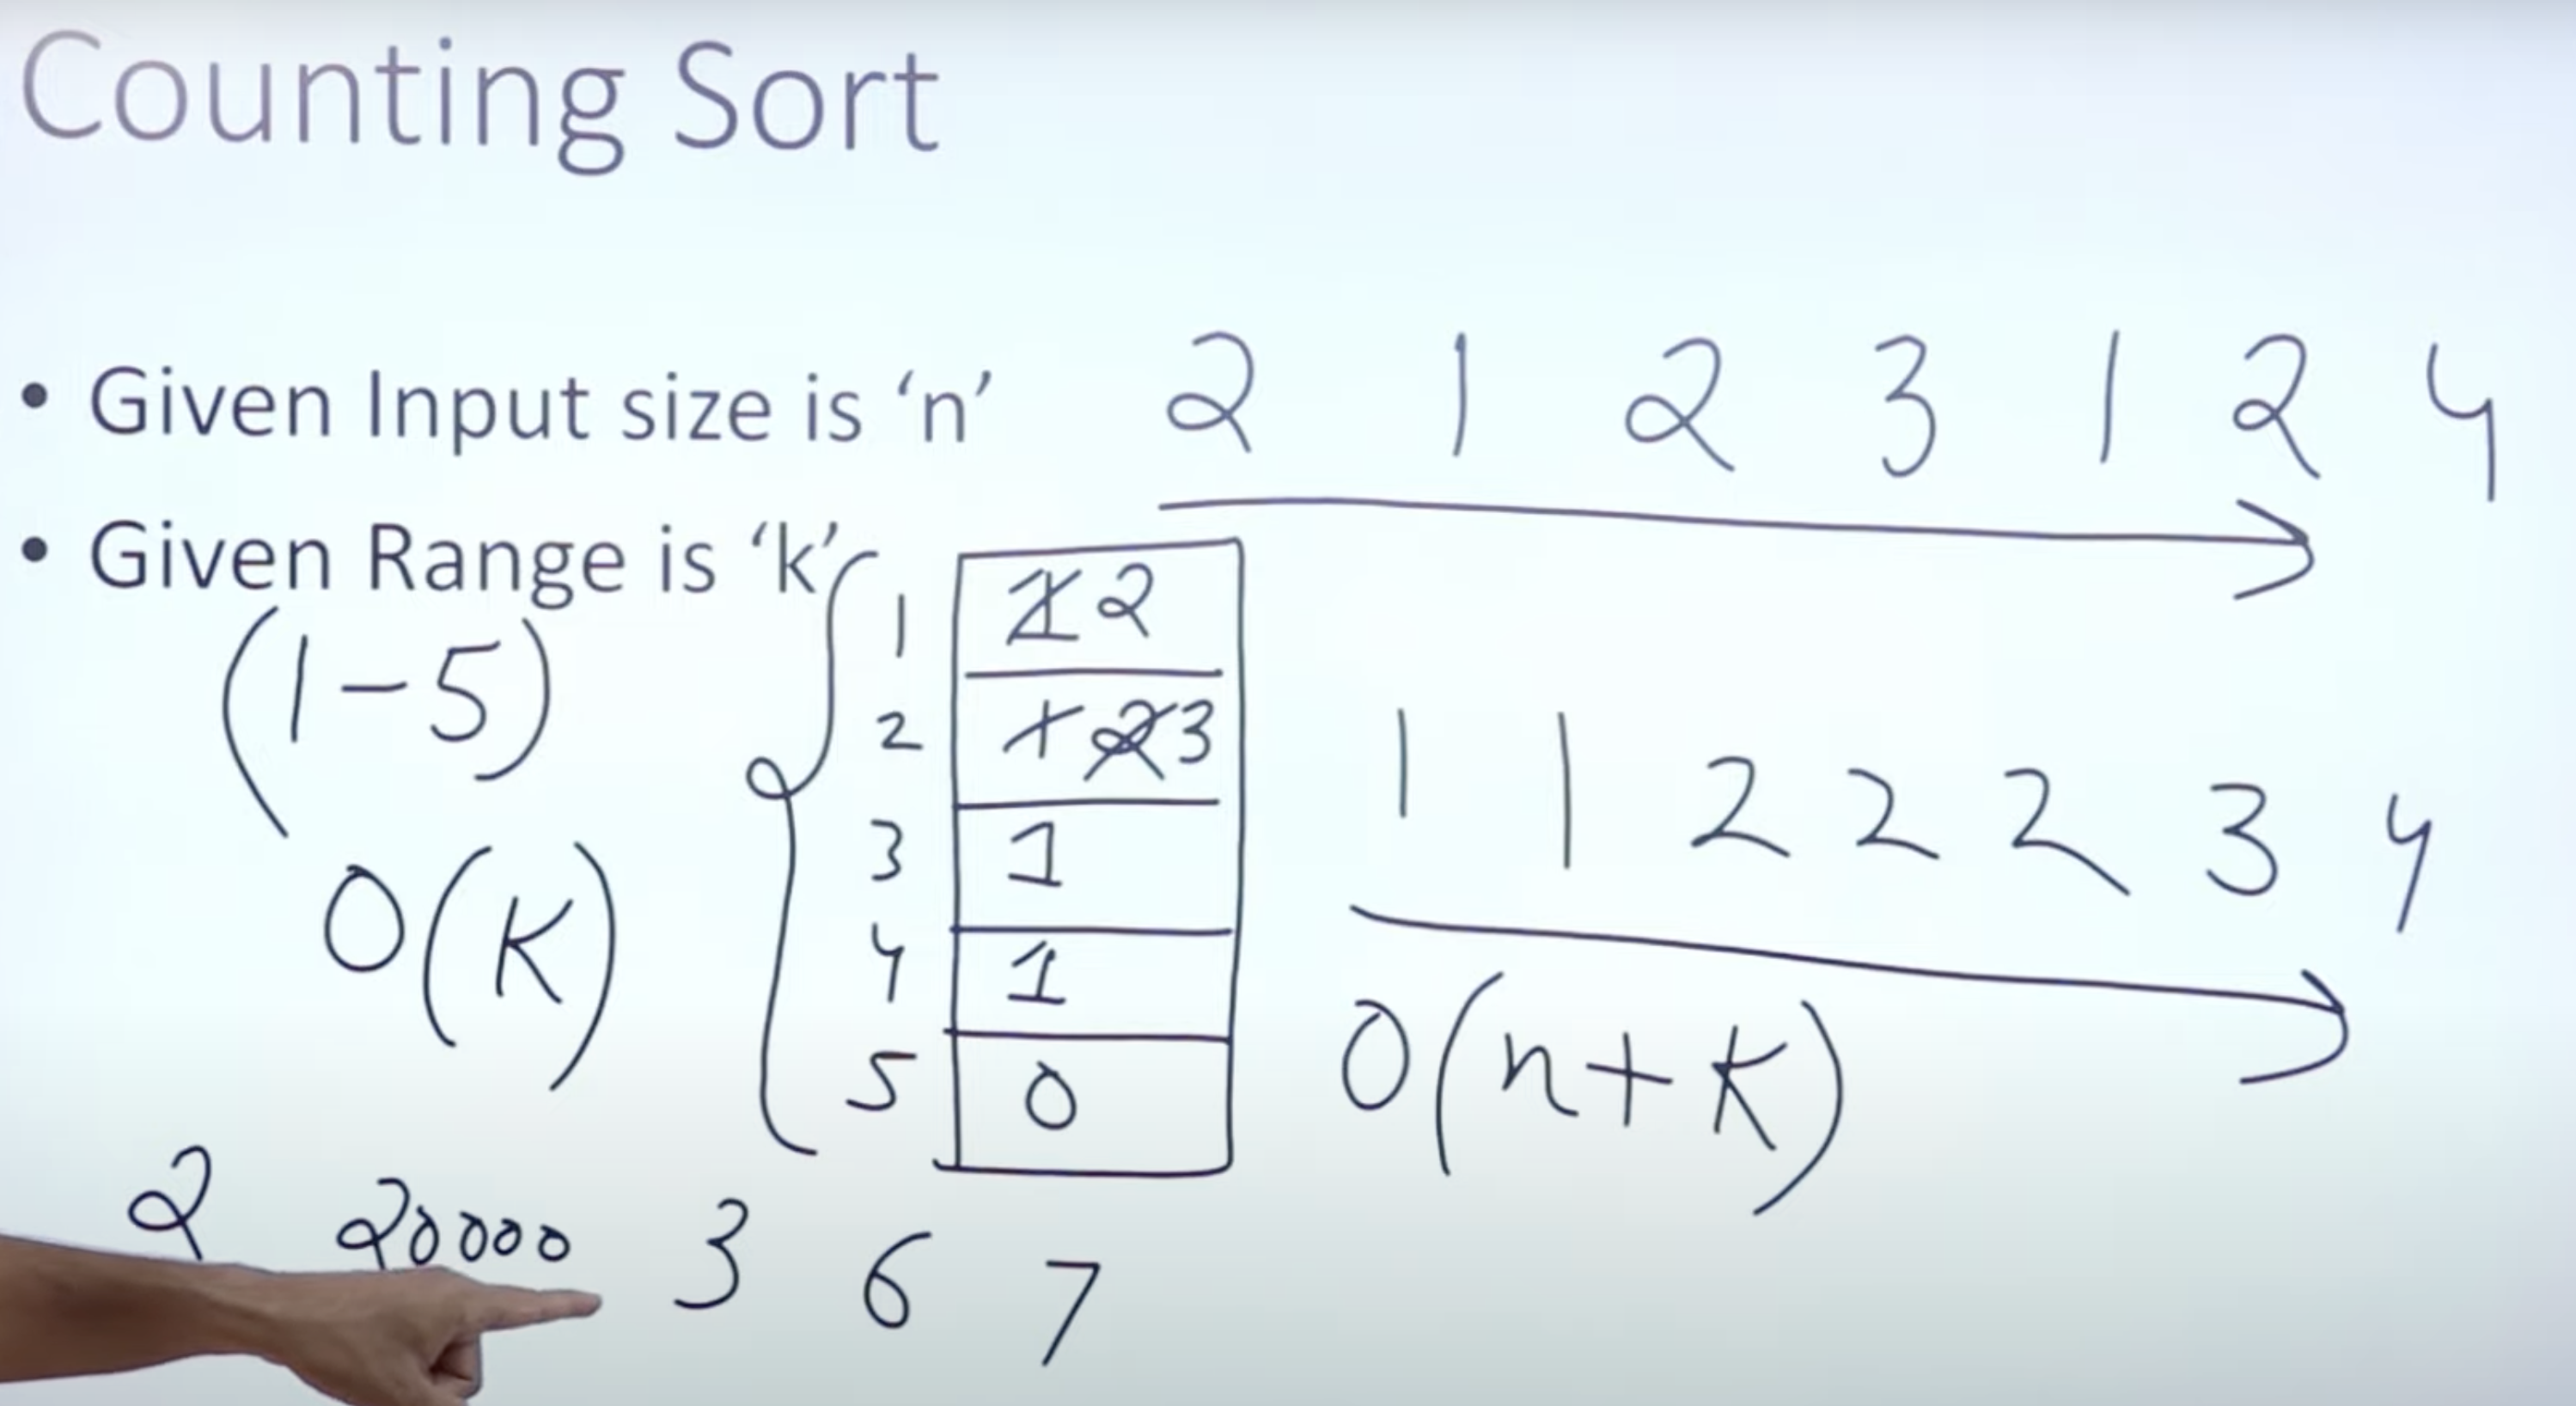 Counting Sort
• Given Input size is ‘n’
2 1 2 3 1 2 4
• Given Range is ‘k’
(1-5)
O(K)
1 1 2
2 1 2 3
3 1
4 1
5 0
1 1 2 2 2 3 4
O(n+K)
2 20000 3 6 7